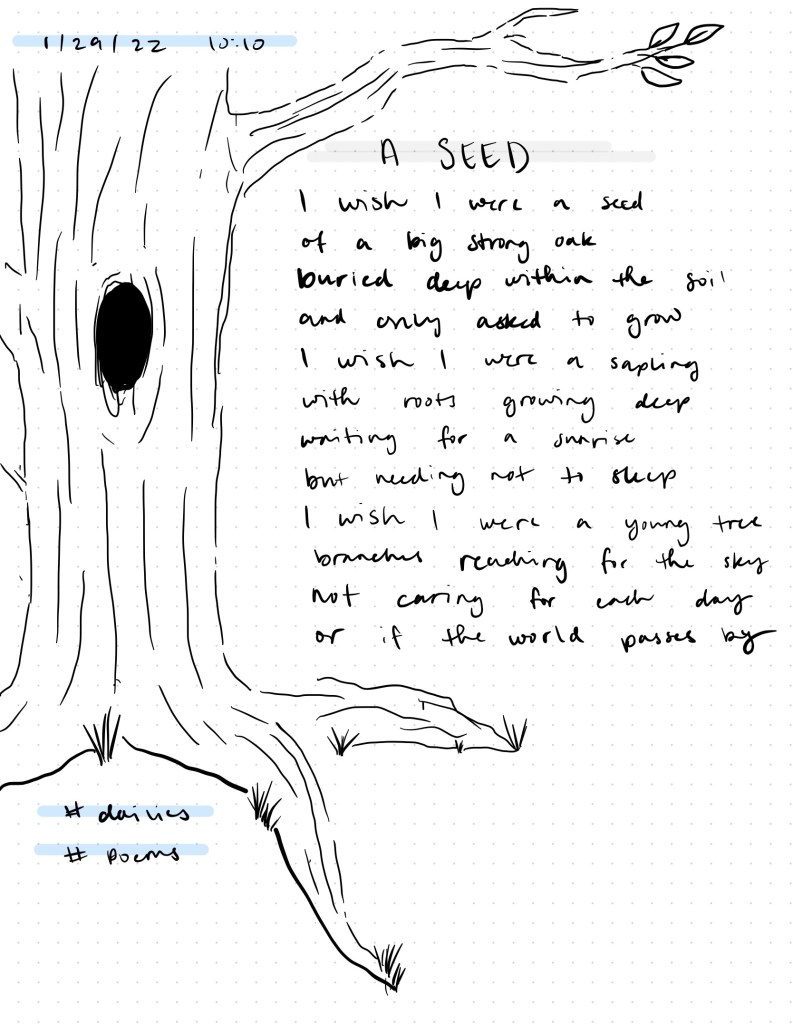 1/29/22 10:10
A SEED
I wish I were a seed
of a big strong oak
buried deep within the soil
and only asked to grow
I wish I were a sapling
with roots growing deep
waiting for a sunrise
but needing not to sleep
I wish I were a young tree
branches reaching for the sky
not caring for each day
or if the world passes by
# dairies
# poems